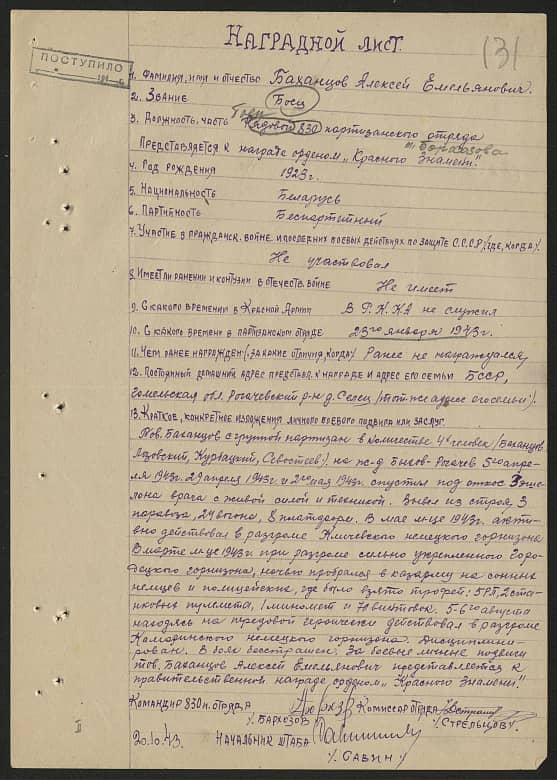 Наградной лист
131
ПОСТУПИЛО
1. Фамилия, имя и отчество Баханцов Алексей Емельянович.
2. Звание Боец
3. Должность, часть Рядовой 830 партизанского отряда
Представляется к награде орденом „Красного Знамени".
4. Год рождения 1923 г.
5. Национальность Беларусь
6. Партийность Беспартийный
7. Участие в гражданск. войне и последних боевых действиях по защите С.С.С.Р. (где, когда).
Не участвовал
8. Имеет ли ранения и контузии в отечеств. войне Не имеет
9. С какого времени в Красной Армии В Р.К.К.А не служил
10. С какого времени в партизанском отряде 23го января 1943 г.
11. Чем ранее награжден (за какие отличия, когда) Ранее не награждался
12. Постоянный домашний адрес представл. к награде и адрес его семьи БССР,
Гомельская обл. Рогачевский р-н д. Селец (тот же адрес его семьи).
13. Краткое, конкретное изложения личного боевого подвига или заслуг.
Тов. Баханцов с группой партизан в количестве 4х человек (Баханцов,
на ж-д Быхов-Рогачев 5го апре-
ля 1943г. 29 апреля 1943г и 2го мая 1943г. спустил под откос 3 эше-
лона врага с живой силой и техникой. Вывел из строя, 3
паровоза, 24 вагона, 8 платформ. В мае м-це 1943г. акти-
вно действовал в разгроме Кличевского немецкого горнизона
В марте м-це 1943г при разгроме сильно укрепленного Горо-
децкого горнизона, ночью пробрался в казарму на сонных
немцев и полицейских, где было взято трофей: 5 РП, 2 стан-
ковых пулемета, 1 миномет и 70 винтовок. 5-6го августа
находясь на передовой героически действовал в разгроме
немецкого горнизона. Дисциплини-
рован. В боях бесстрашен. За боевые личные подвиги
тов. Баханцов Алексей Емельянович представляется к
правительственной награде орденом „Красного Знамени".
Командир 830 п. отряда Комиссар отряда
/Бархозов/ /Стрельцов/
20.10.43. Начальник штаба
/Савин/
II